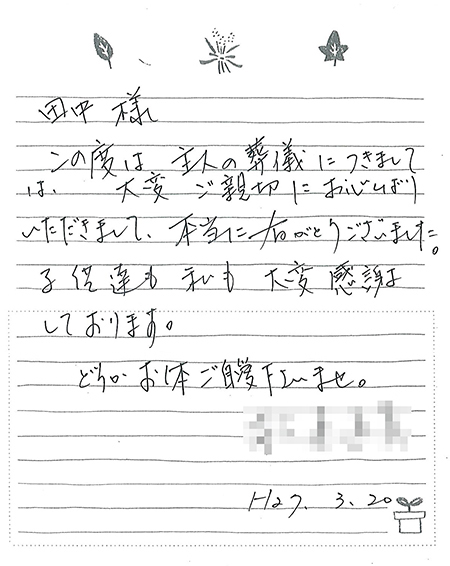 田中 様
この度は 主人の葬儀につきまして
は、 大変 ご親切に おじひばり
いただきまして、本当に有がとうございました。
子供達も 私も 大変 感謝
しております。
どうか お体ご自愛下さいませ。
H27. 3. 20